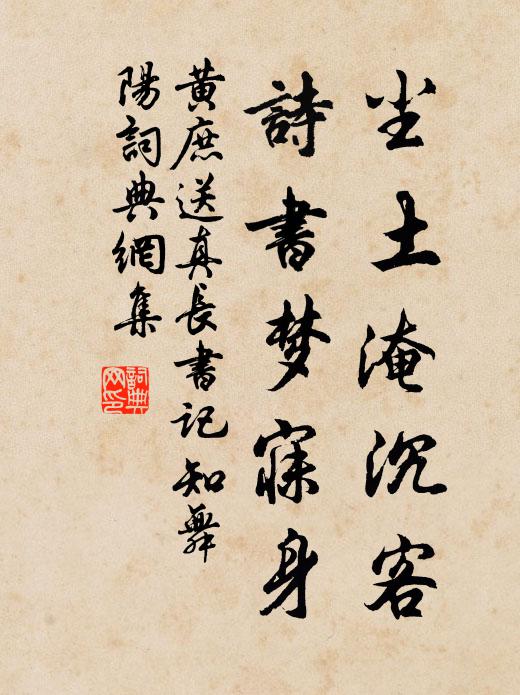 尘土淹沉客
詩書梦寐身
黄庶送真長書記知舞
陽詞典網集
詞典
网印